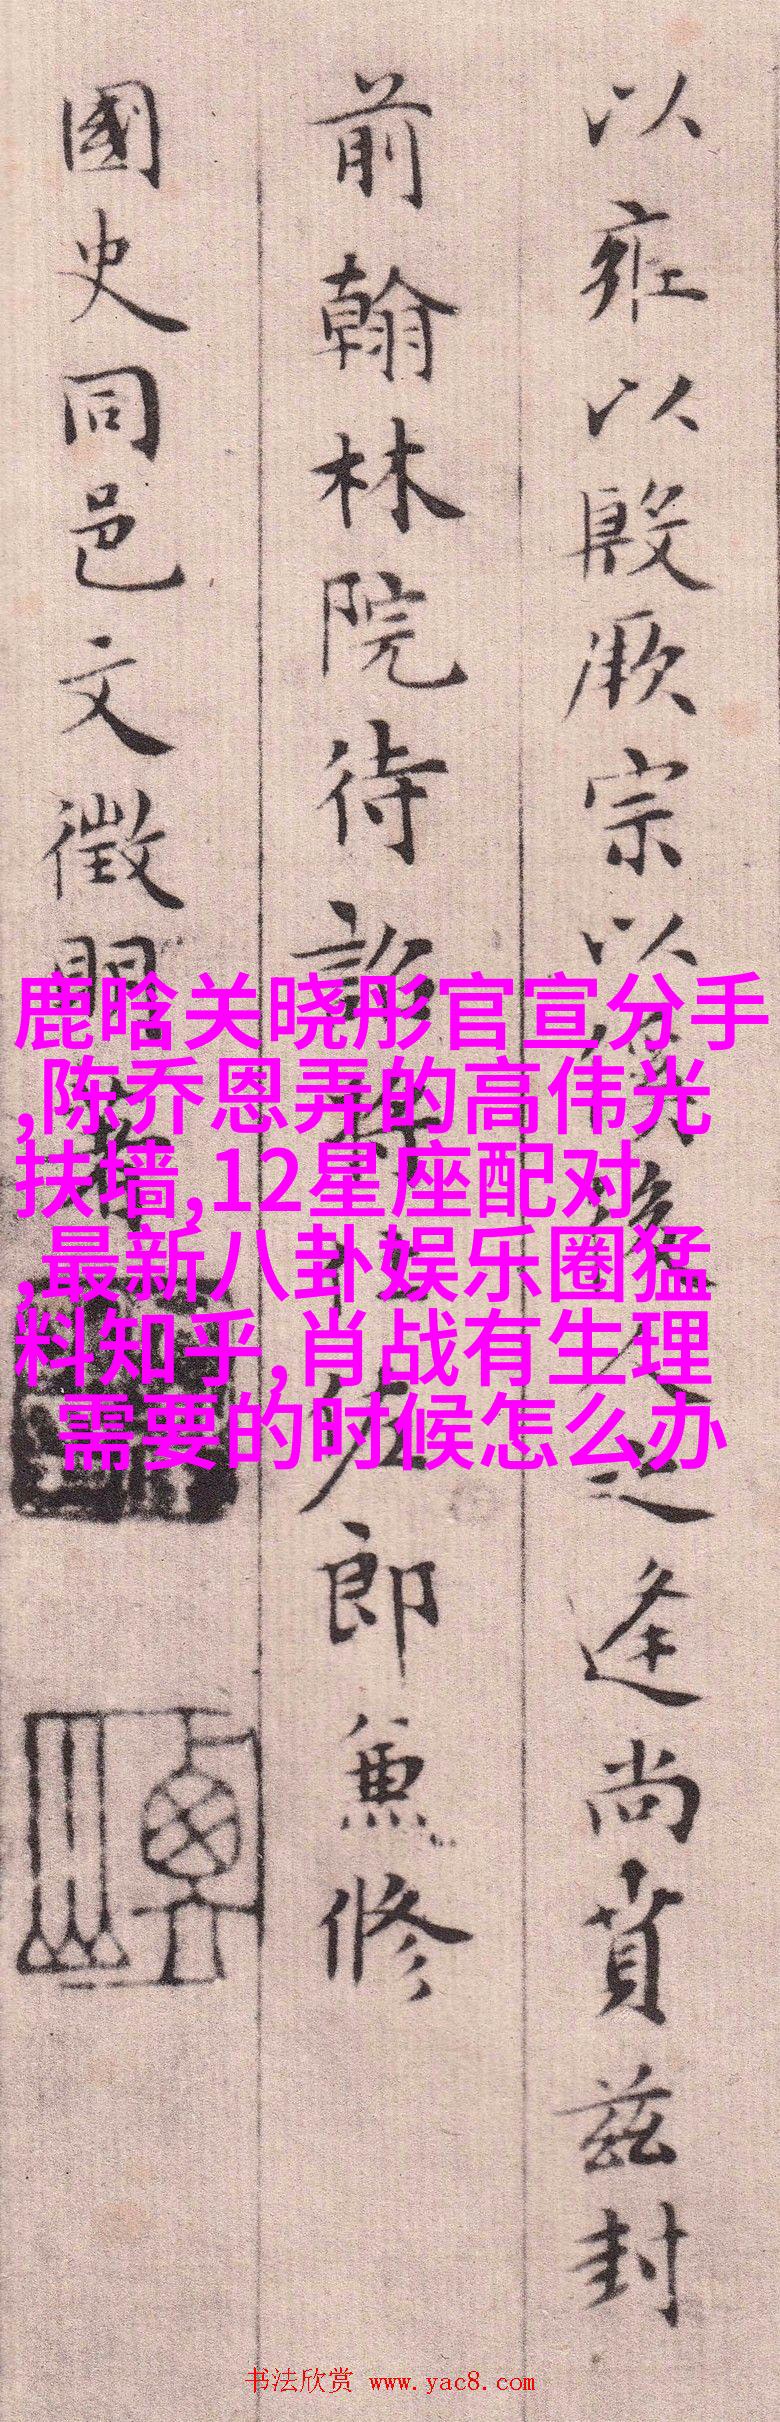 以雍以殷厥宗以
之逢尚賁茲封
前翰林院待詔
佐郎兼修
國史同邑文徵明
鹿晗关晓彤官宣分手
,陈乔恩弄的高伟光
扶墙,12星座配对
,最新八卦娱乐圈猛
料知乎,肖战有生理
需要的时候怎么办
书法欣赏 www.yac8.com